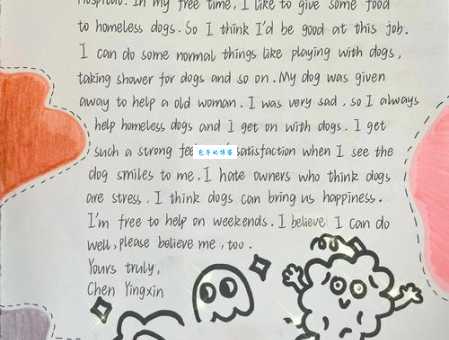 Hospital. In my free time, I like to give some food
to homeless dogs. So I think I'd be good at this job.
I can do some normal things like playing with dogs,
taking shower for dogs and so on. My dog was given
away to help a old woman. I was very sad, so I always
help homeless dogs and I get on with dogs. I get
such a strong satisfaction when I see the
dog smiles to me. I hate owners who think dogs
are stress. I think dogs can bring us happiness.
I'm free to help on weekends. I believe I can do
well, please believe me, too.
Yours truly,
Chen Yingxin